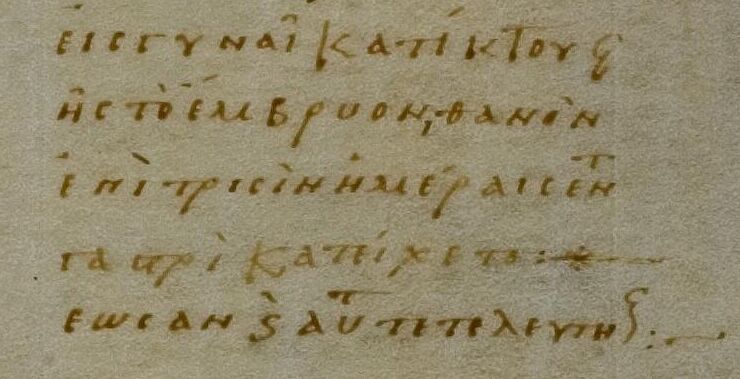 εἰς γυναῖκα τίκτουσ
ἧς τὸ ἔμβρυον, θανὸν
ἐπὶ τρισὶν ἡμέραις ἐν τ
γαστρὶ κατείχετο :
ἕως ἂν ϗ αὐτ τετελευτηκ :